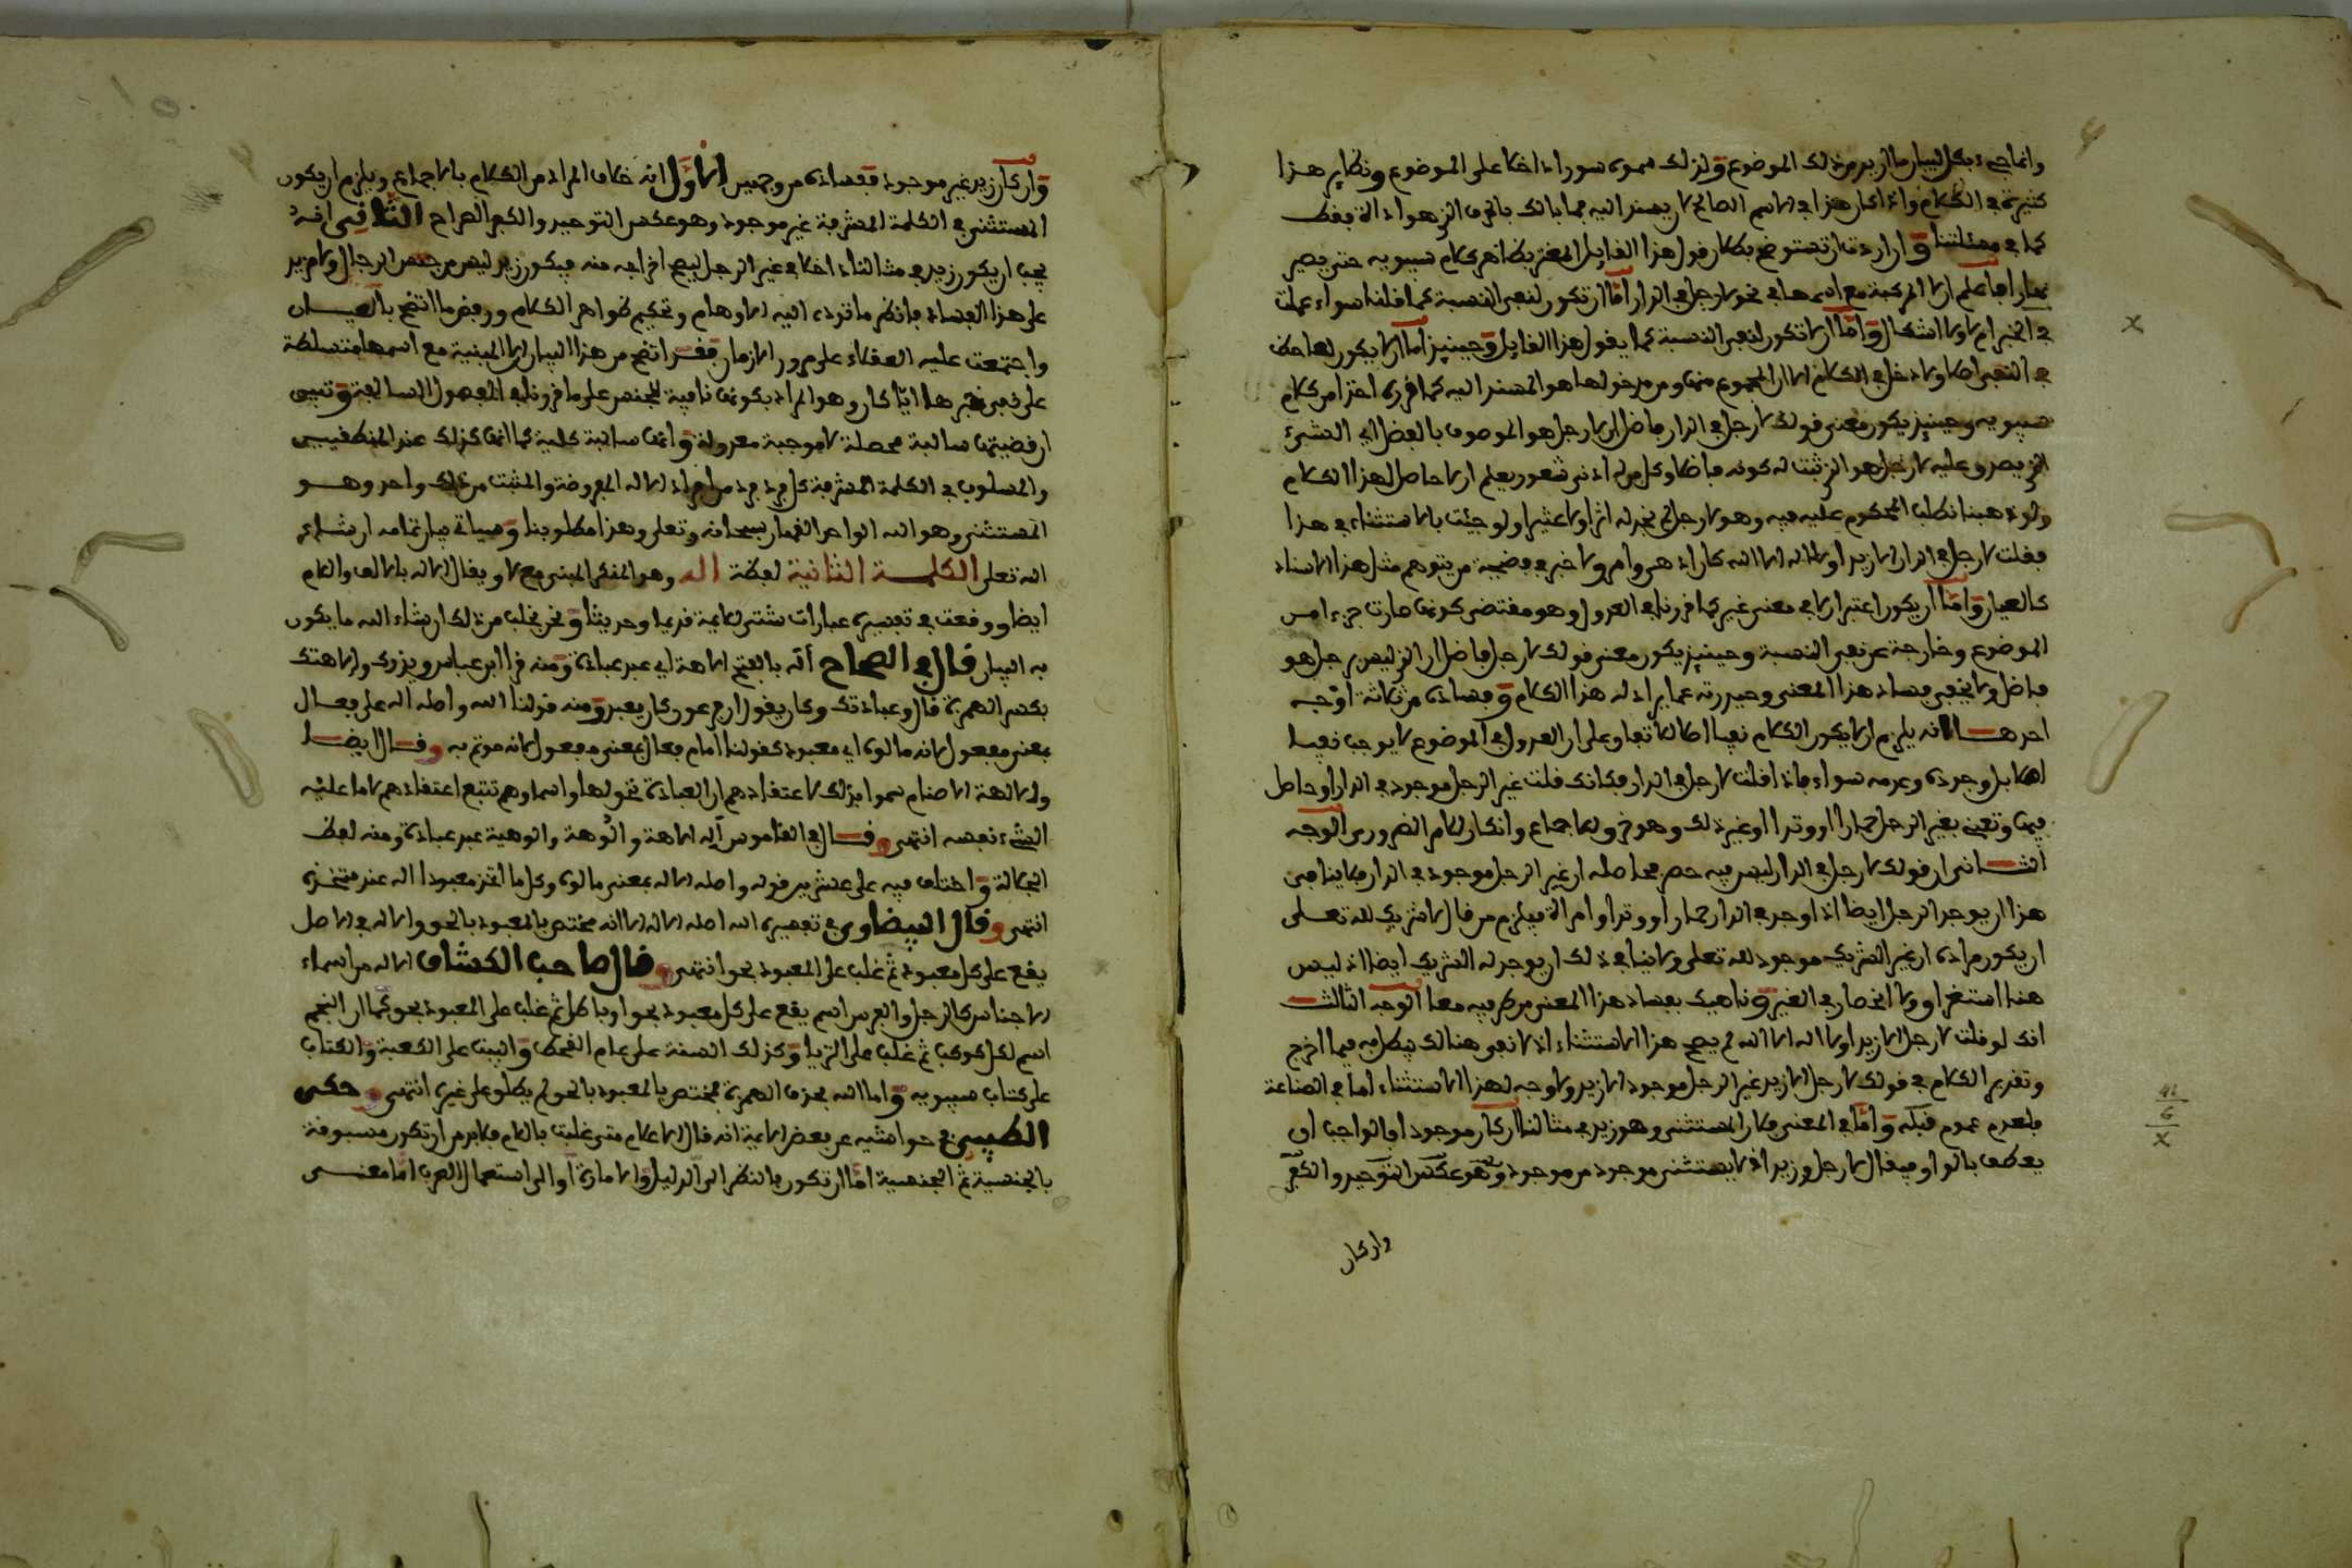 وانما جيء بكل لبيان ما اريد من ذلك الموضوع ولذلك سموه سورا داخلا على الموضوع ونظاير هذا
كثيرة في الكلام واذا كان هذا في الاسم الصالح لان يسند اليه فما بالك بالحرف الذي هو اداة فقط
كما في مسئلتنا وان اردت ان تستوضح بطلان قول هذا القايل المغتر بظاهر كلام سيبويه حتى يصير
فاعلم ان لا المركبة مع اسمها في نحو لا رجل في الدار اما ان تكون لنفي النسبة كما قلنا سواء عملت
في الخبر ام لا ولا اشكال واما ان لا تكون لنفي النسبة كما يقول هذا القايل وحينيذ اما ان لا يكون لها حظ
في النفي اصلا ولا دخل في الكلام الا ان المجموع منها ومن مدخولها هو المسند اليه كما قرره اخذا من كلام
سيبويه وحينيذ يكون معنى قولك لا رجل في الدار فاضل ان لا رجل هو الموصوف بالفضل اي الشيء
الذي يصدق عليه لا رجل هو الذي ثبت له كونه فاضلا وكل من له ادنى شعور يعلم ان لا حاصل لهذا الكلام
ولو ذهبنا نطلب المحكوم عليه فيه وهو لا رجل لم نجد له اثرا ولا عثيرا ولو جيت بالاستثناء في هذا
فقلت لا رجل في الدار الا زيد او لا اله الا الله كان اده‍ى وامر ولا خبر في قضية من يتوهم مثل هذا الاسناد
كالعيان واما ان يكون اعتبار لا في معنى غير كما قررناه في العدول وهو مقتضى كونها صارت جزءا من
الموضوع وخارجة عن نفي النسبة وحينيذ يكون معنى قولك لا رجل فاضل ان الذي ليس برجل هو
فاضل ولا يخفى فساد هذا المعنى وحيدته عما يراد له هذا الكلام وفساده من ثلاثة اوجه
احدها انه يلزم ان لا يكون الكلام نفيا اصلا للاتفاق على ان العدول في الموضوع لا يوجب نفيا
اصلا بل وجوده وعدمه سواء فاذا قلت لا رجل في الدار فكانك قلت غير الرجل موجود في الدار او حاصل
فيها وتعني بغير الرجل حمارا او وتدا او غير ذلك وهو خرق للاجماع وانكار للامر الضروري الوجه
الثاني ان قولك لا رجل في الدار ليس فيه حصر فحاصله ان غير الرجل موجود في الدار فلا ينافي
هذا ان يوجد الرجل ايضا اذا وجد في الدار حمار او وتد او امراة فيلزم من قال لا شريك لله تعلى
ان يكون مراده ان غير الشريك موجود لله تعلى ولا ينافي ذلك ان يوجد له الشريك ايضا اذ ليس
هنا استغراق ولا انحصار في الغير وناهيك بفساد هذا المعنى من كل فيه معا الوجه الثالث
انك لو قلت لا رجل الا زيد او لا اله الا الله لم يصح هذا الاستثناء اذ لا نفي هنالك فبطل به فيما اخرج
وتقدير الكلام في قولك لا رجل الا زيد غير الرجل موجود الا زيد ولا وجه لهذا الاستثناء اما في الصناعة
فلعدم عموم قبله واما في المعنى فلان المستثنى وهو زيد في مثالنا ان كان موجودا فالواجب ان
يعطف بالواو فيقال لا رجل وزيد اذ لا يستثنى موجود من موجود وهو عكس التوحيد والكفر
وان كان
وان كان زيد غير موجود ففساده من وجهين الاول انه خلاف المراد من الكلام بالاجماع ويلزم ان يكون
المستثنى في الكلمة المشرفة غير موجود وهو عكس التوحيد والكفر الصراح الثاني انه
يجب ان يكون زيد في مثالنا داخلا في غير الرجل ليصح اخراجه منه فيكون زيد ليس من جنس الرجال ولا مزيد
على هذا الفساد فانظر ما تؤدي اليه الاوهام وتحكيم ظواهر الكلام ورفض ما اتضح بالعيان
واجتمعت عليه العقلاء على مرور الازمان فقد اتضح من هذا البيان ان لا المبنية مع اسمها متسلطة
على نفي خبرها ايا كان وهو المراد بكونها نافية للجنس على ما قررناه في الفصول السالفة وتبين
ان قضيتها سالبة محصلة لا موجبة معدولة وانها سالبة كلية كما انها كذلك عند المنطقيين
والمسلوب في الكلمة المشرفة كل فرد فرد من افراد الاله المفروضة والمثبت من ذلك واحد وهو
المستثنى وهو الله الواحد القهار سبحانه وتعلى وهذا مطلوبنا وسياتي بيان تمامه ان شاء
الله تعلى الكلمة الثانية لفظة اله وهو المنكر المبني مع لا ويقال الاله بالالف واللام
ايضا ووقعت في تفسيره عبارات شتى للايمة قديما وحديثا ونحن نجلب من ذلك ان شاء الله ما يكون
به البيان قال في الصحاح أله بالفتح الاهة اي عبد عبادة ومنه قرا ابن عباس ويذرك والاهتك
بكسر الهمزة قال وعبادتك وكان يقول ان فرعون كان يعبد ومنه قولنا الله واصله اله على فعال
بمعنى مفعول لانه مالوه اي معبود كقولنا امام فعال بمعنى مفعول لانه موتم به وقال ايضا
والالهة الاصنام سموا بذلك لاعتقادهم ان العبادة تحق لها واسماوهم تتبع اعتقادهم لا ما عليه
الشيء نفسه انتهى وقال في القاموس أله الاهة والُوهة والوهية عبد عبادة ومنه لفظ
الجلالة واختلف فيه على عشرين قولا واصله الاله بمعنى مالوه وكل ما اتخذ معبودا اله عند متخذه
انتهى وقال البيضاوي في تفسيره الله اصله الاله الا انه مختص بالمعبود بالحق والاله في الاصل
يقع على كل معبود ثم غلب على المعبود بحق انتهى وقال صاحب الكشاف الاله من اسماء
الاجناس كالرجل والفرس اسم يقع على كل معبود بحق او باطل ثم غلب على المعبود بحق كما ان النجم
اسم لكل كوكب ثم غلب على الثريا وكذلك السنة على عام القحط والبيت على الكعبة والكتاب
على كتاب سيبويه واما الله بحذف الهمزة فمختص بالمعبود بالحق لم يطلق على غيره انتهى وحكى
الطيبي في حواشيه عن بعض الايمة انه قال الاعلام متى غلبت باللام فلابد من ان تكون مسبوقة
بالجنسية ثم الجنسية اما ان تكون بالنظر الى الدليل والامارة او الى استعمال العرب اما معنى